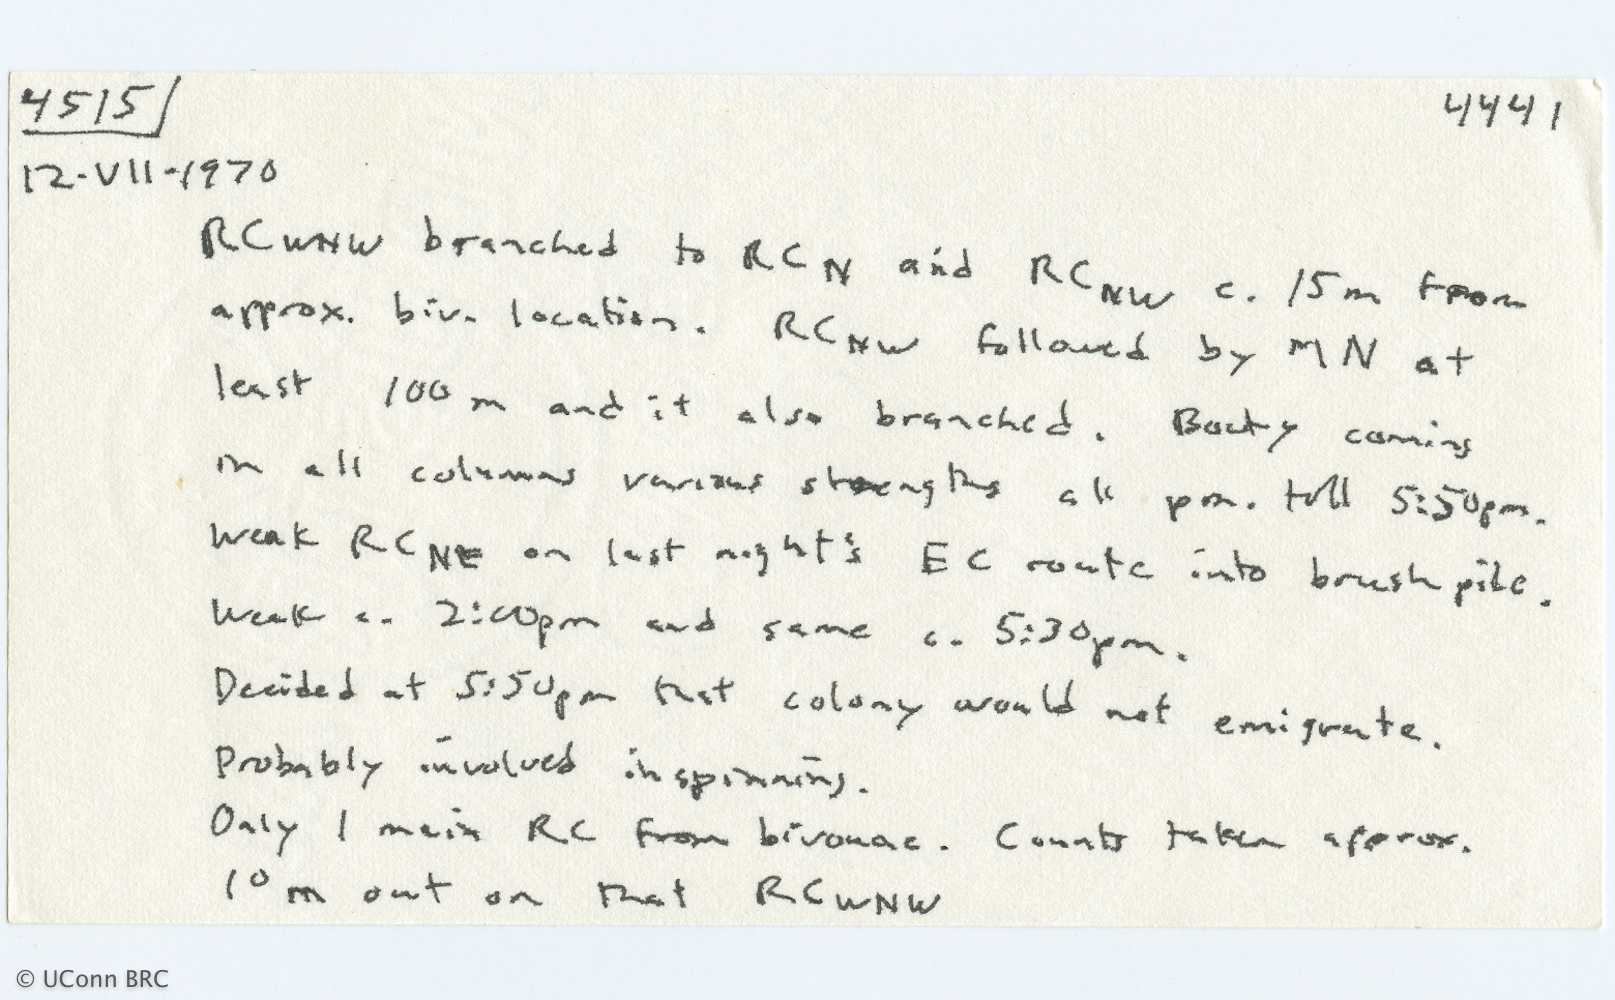 4515/ 4441
12-VII-1970
RCWNW branched to RCN and RCNW c. 15m from
approx. biv. location. RCNW followed by MN at
least 100m and it also branched. Booty coming
in all columns various strengths all pm. till 5:50pm.
Weak RCNE on last night's EC route into brush pile.
Weak c. 2:00pm and same c. 5:30pm.
Decided at 5:50pm that colony would not emigrate.
Probably involved in spinning.
Only 1 main RC from bivouac. Counts taken approx.
10m out on that RCWNW
© UConn BRC